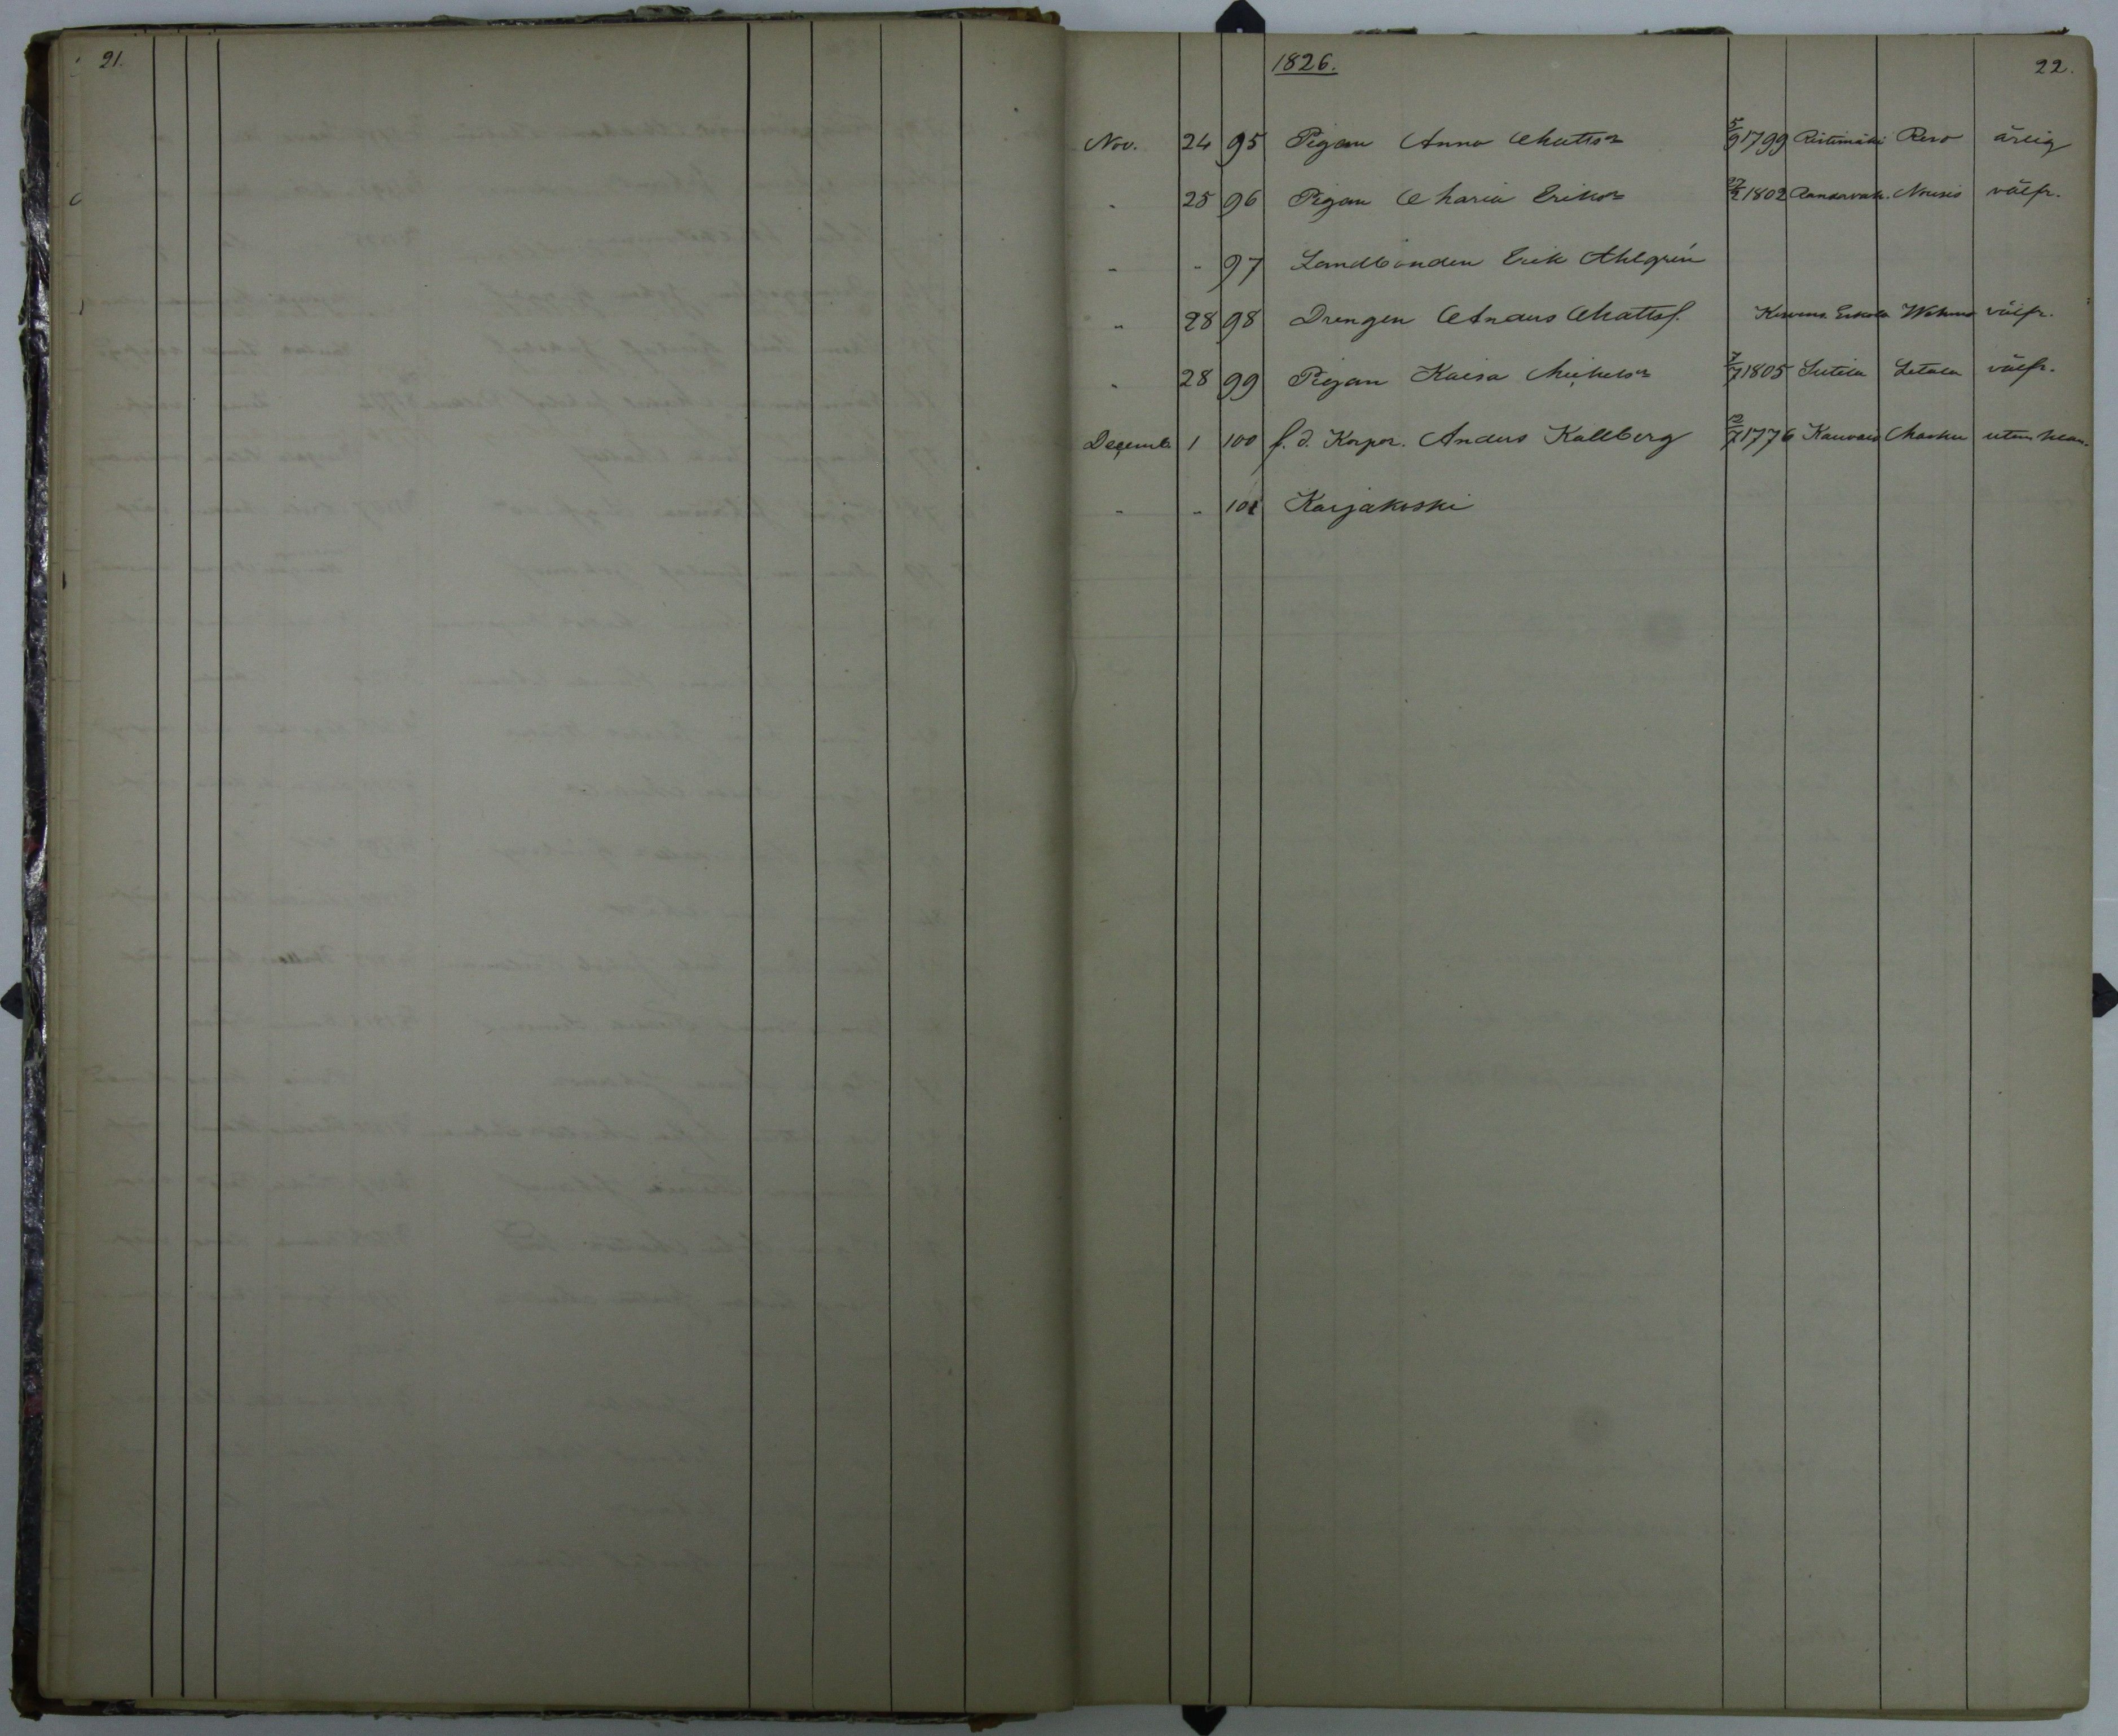 21.
1826.
22.
Nov. 24 95 Pigan Anna Mattsdr 5/9 1799 Ristimäki Reso ärlig
" 25 96 Pigan Maria Eriksdr 1802 Nousis välfr.
" " 97 Landbonden Erik Ahlgrén
" 28 98 Drengen Anders Mattsf. Eskola Wehmo välfr.
" 28 99 Pigan Kaisa Michelsdr 7/7 1805 Letala välfr.
Decemb. 1 100 f. d. Korpor. Anders Kallberg 1776 Kauvais Masku utan
" " 101 Karjakoski